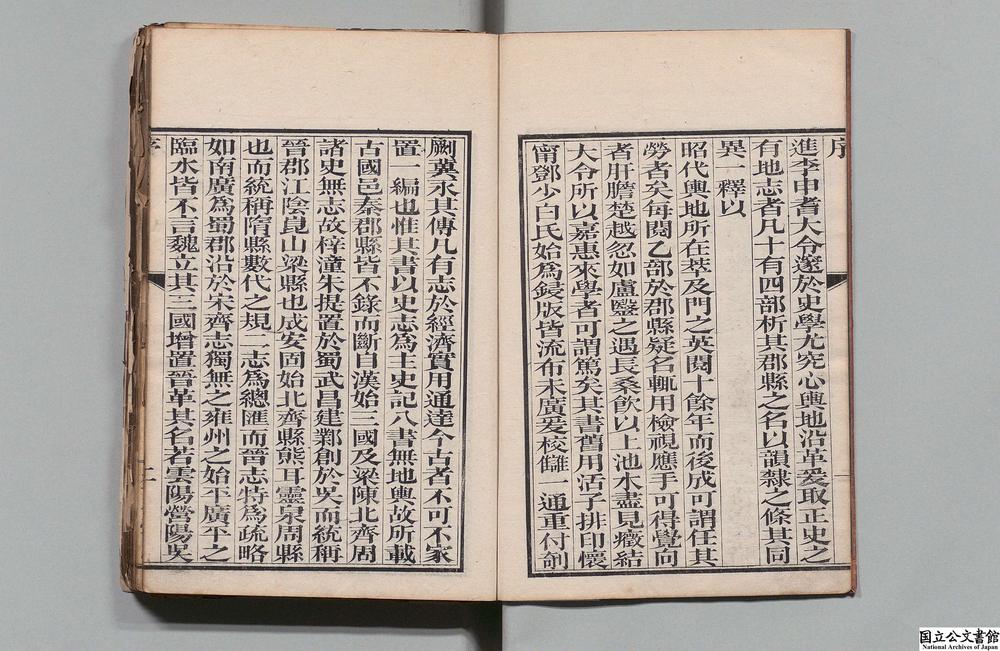 序
進李申耆大令邃於史學尤究心輿地沿革爰取正史之
有地志者凡十有四部析其郡縣之名以韻隸之條其同
異一釋以
昭代輿地所在萃及門之英閱十餘年而後成可謂任其
勞者矣每閱乙部於郡縣疑名輒用檢視應手可得覺向
者肝膽楚越忽如盧醫之遇長桑飲以上池水盡見癥結
大令所以嘉惠來學者可謂篤矣其書舊用活子排印懷
甯鄧少白氏始為鋟版皆流布未廣爰校讎一通重付剞
劂冀永其傳凡有志於經濟實用通達今古者不可不家
置一編也惟其書以史志為主史記八書無地輿故所載
古國邑秦郡縣皆不錄而斷自漢始三國及梁陳北齊周
諸史無志故梓潼朱提置於蜀武昌建鄴創於吳而統稱
晉郡江陰崑山梁縣也成安固始北齊縣熊耳靈泉周縣
也而統稱隋縣數代之規二志為總匯而晉志特為疏略
如南廣為蜀郡沿於宋齊志獨無之雍州之始平廣平之
臨水皆不言魏立其三國增置晉革其名若雲陽營陽吳
序
二
国立公文書館
National Archives of Japan